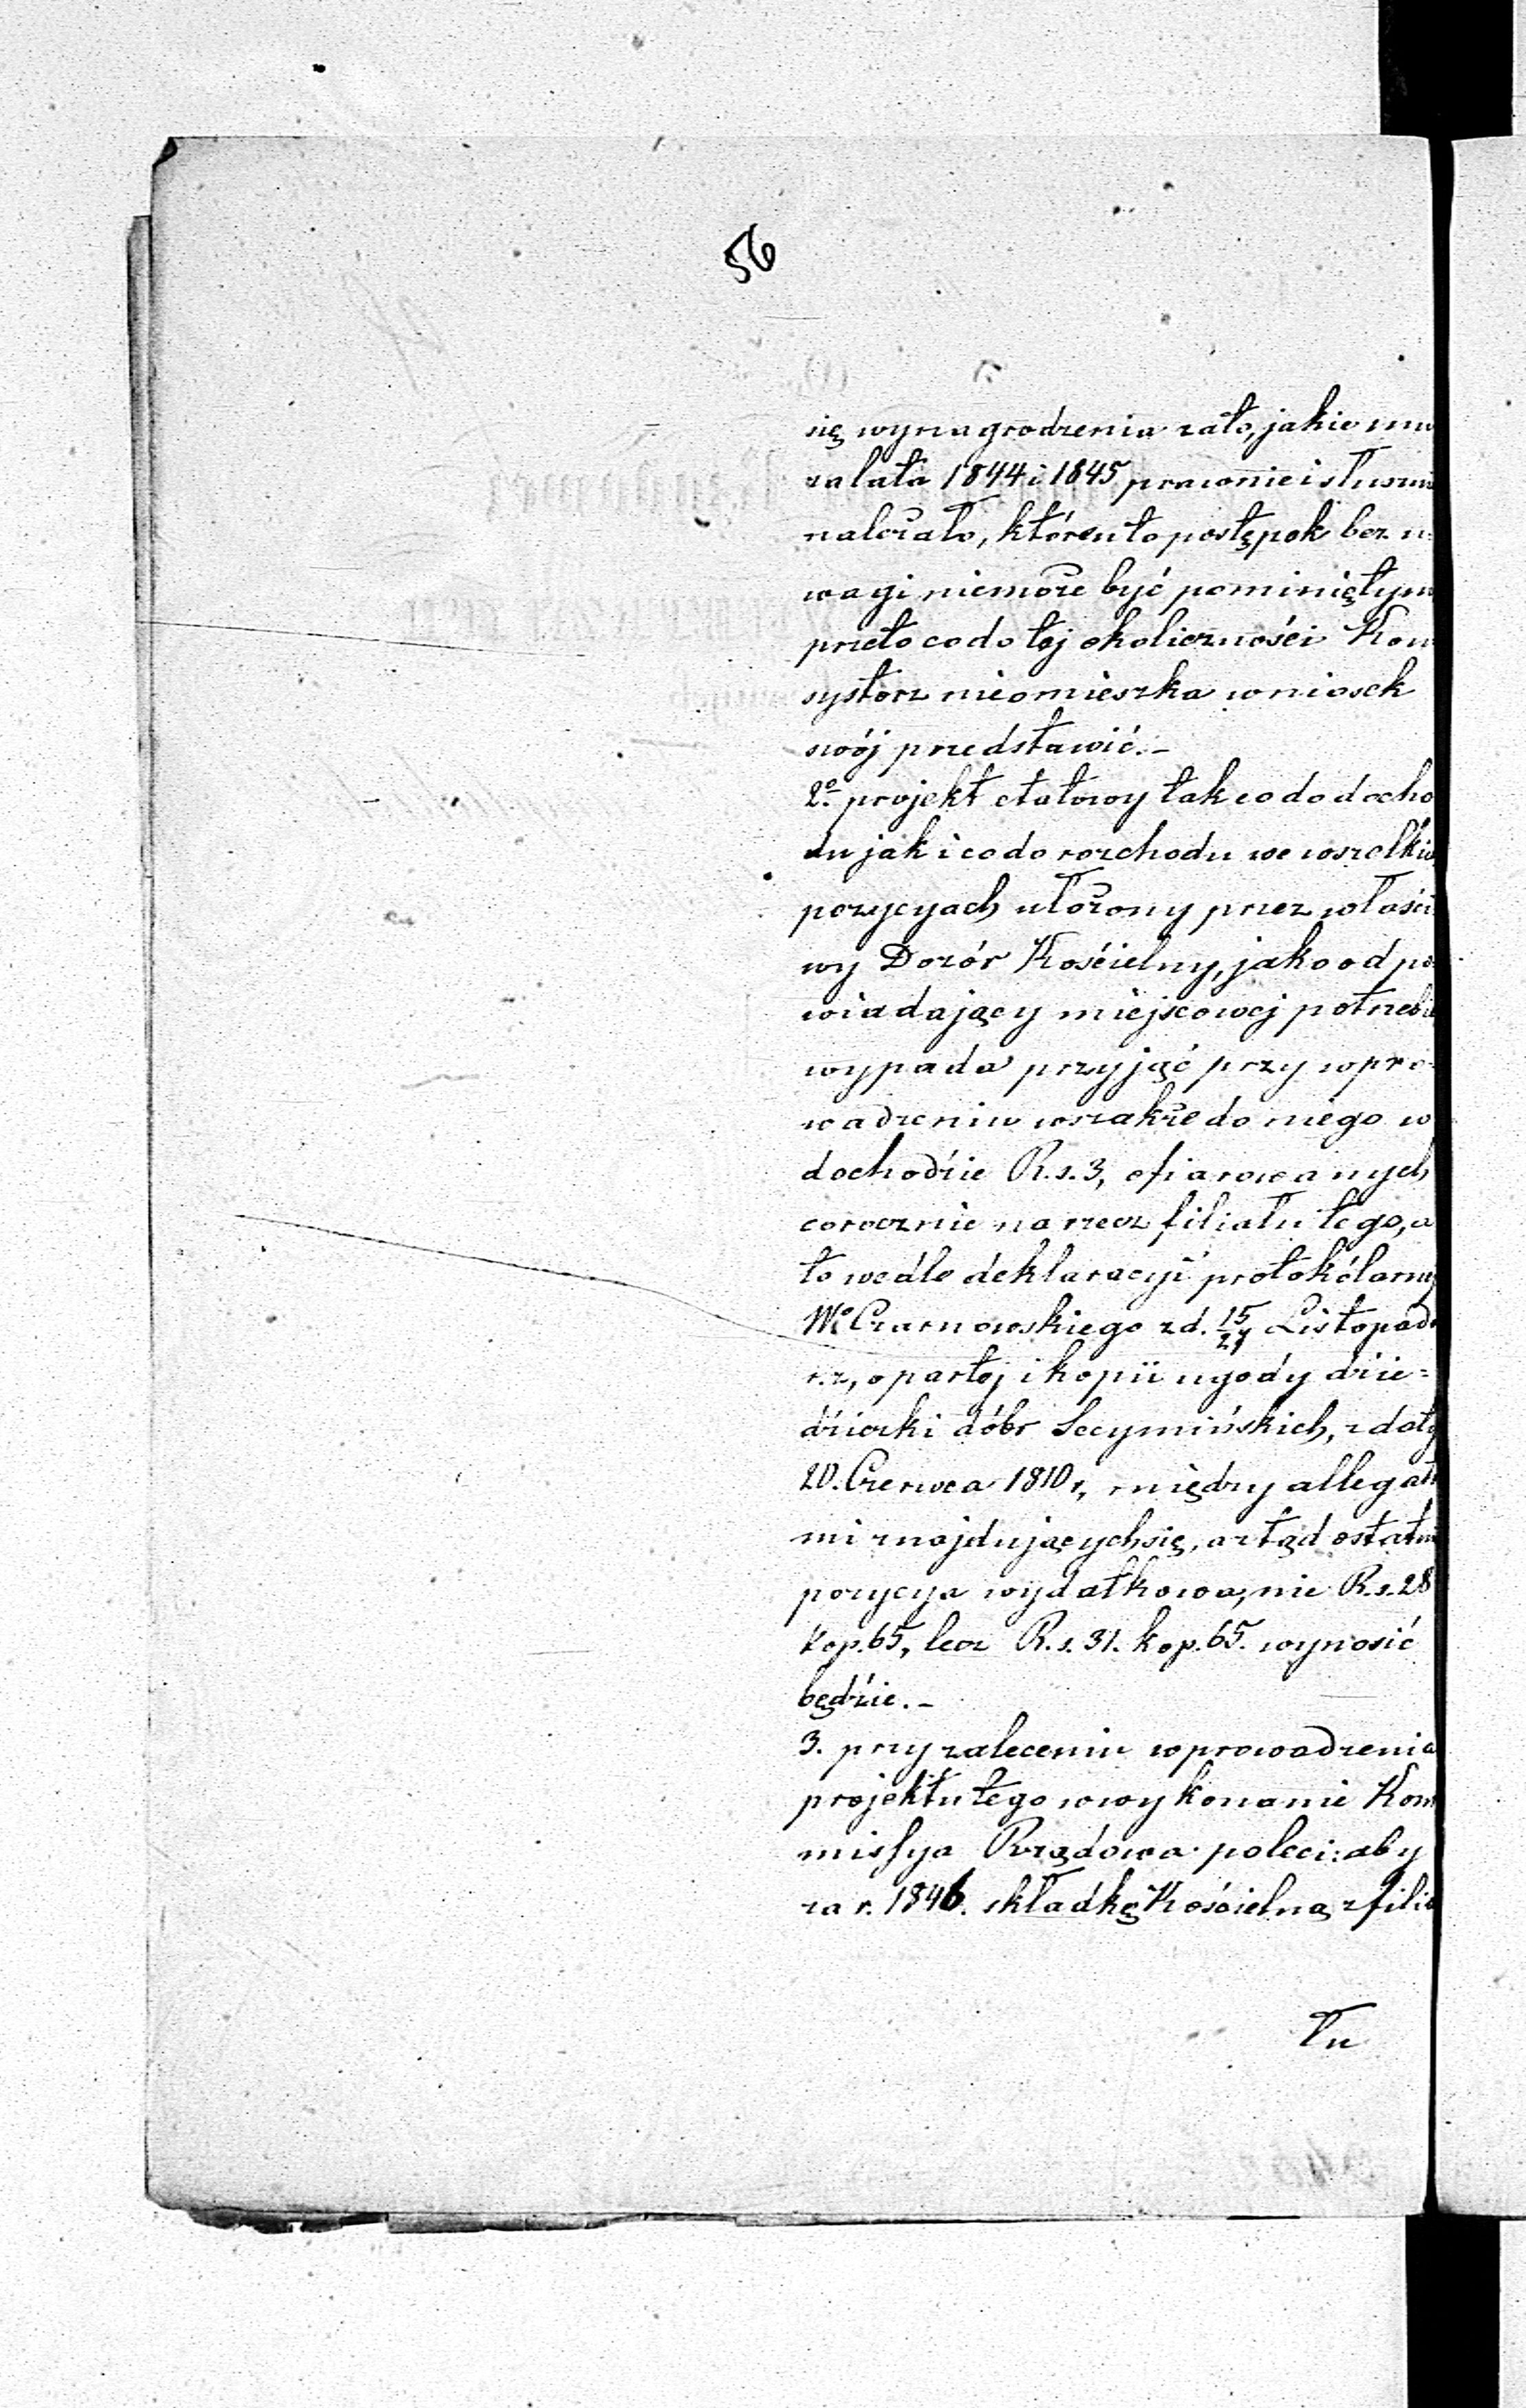 56
się wynagrodzenia zato, jakie mu
za lata 1844 i 1845 prawnie i słuszni
należało, któren to postępek bez u
wagi niemoże być pominiętym
przeto codo tej okoliczności Kon
systorz nieomieszka wniosek
swój przedstawić.-
2o. projekt etatowy tak co do docho
du jak i codo rozchodu we wszelkic
pozycyach ułożony przez właści
wy Dozór Kościelny, jako odpo
wiadający miejscowej potrzebie
wypada przyjąć przy wpro
wadzeniu wszakże do niego w
dochodzie R.s. 3, ofiarowanych
corocznie na rzecz filiału tego, a
to wedle deklaracyi protokólarnej
Wo Czarnowskiego z d. 15/27 Listopada
r.z, opartej i kopii ugody dzie=
dziczki dóbr Secymińskich, z daty
20. Czerwca 1810 r, między allegata
mi znajdujących się, a ztąd ostatni
pozycya wydatkowa, nie R.s. 28
kop. 65, lecz R.s. 31. kop. 65. wynosić
będzie.-
3. przy zaleceniu wprowadzenia
projektu tego w wykonanie Kom
missya Rządowa poleci: aby
za r. 1846. składkę Kościelną z filia
łu